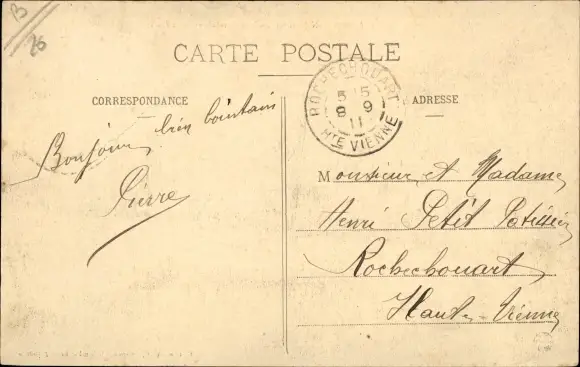 B
26
CARTE POSTALE
CORRESPONDANCE
ADRESSE
ROCHECHOUART
5 15
8 9
11
HTE VIENNE
Bonjour, bien lointain
Pierre
Monsieur et Madame
Henri Petit Patissier
Rochechouart
Haute-Vienne